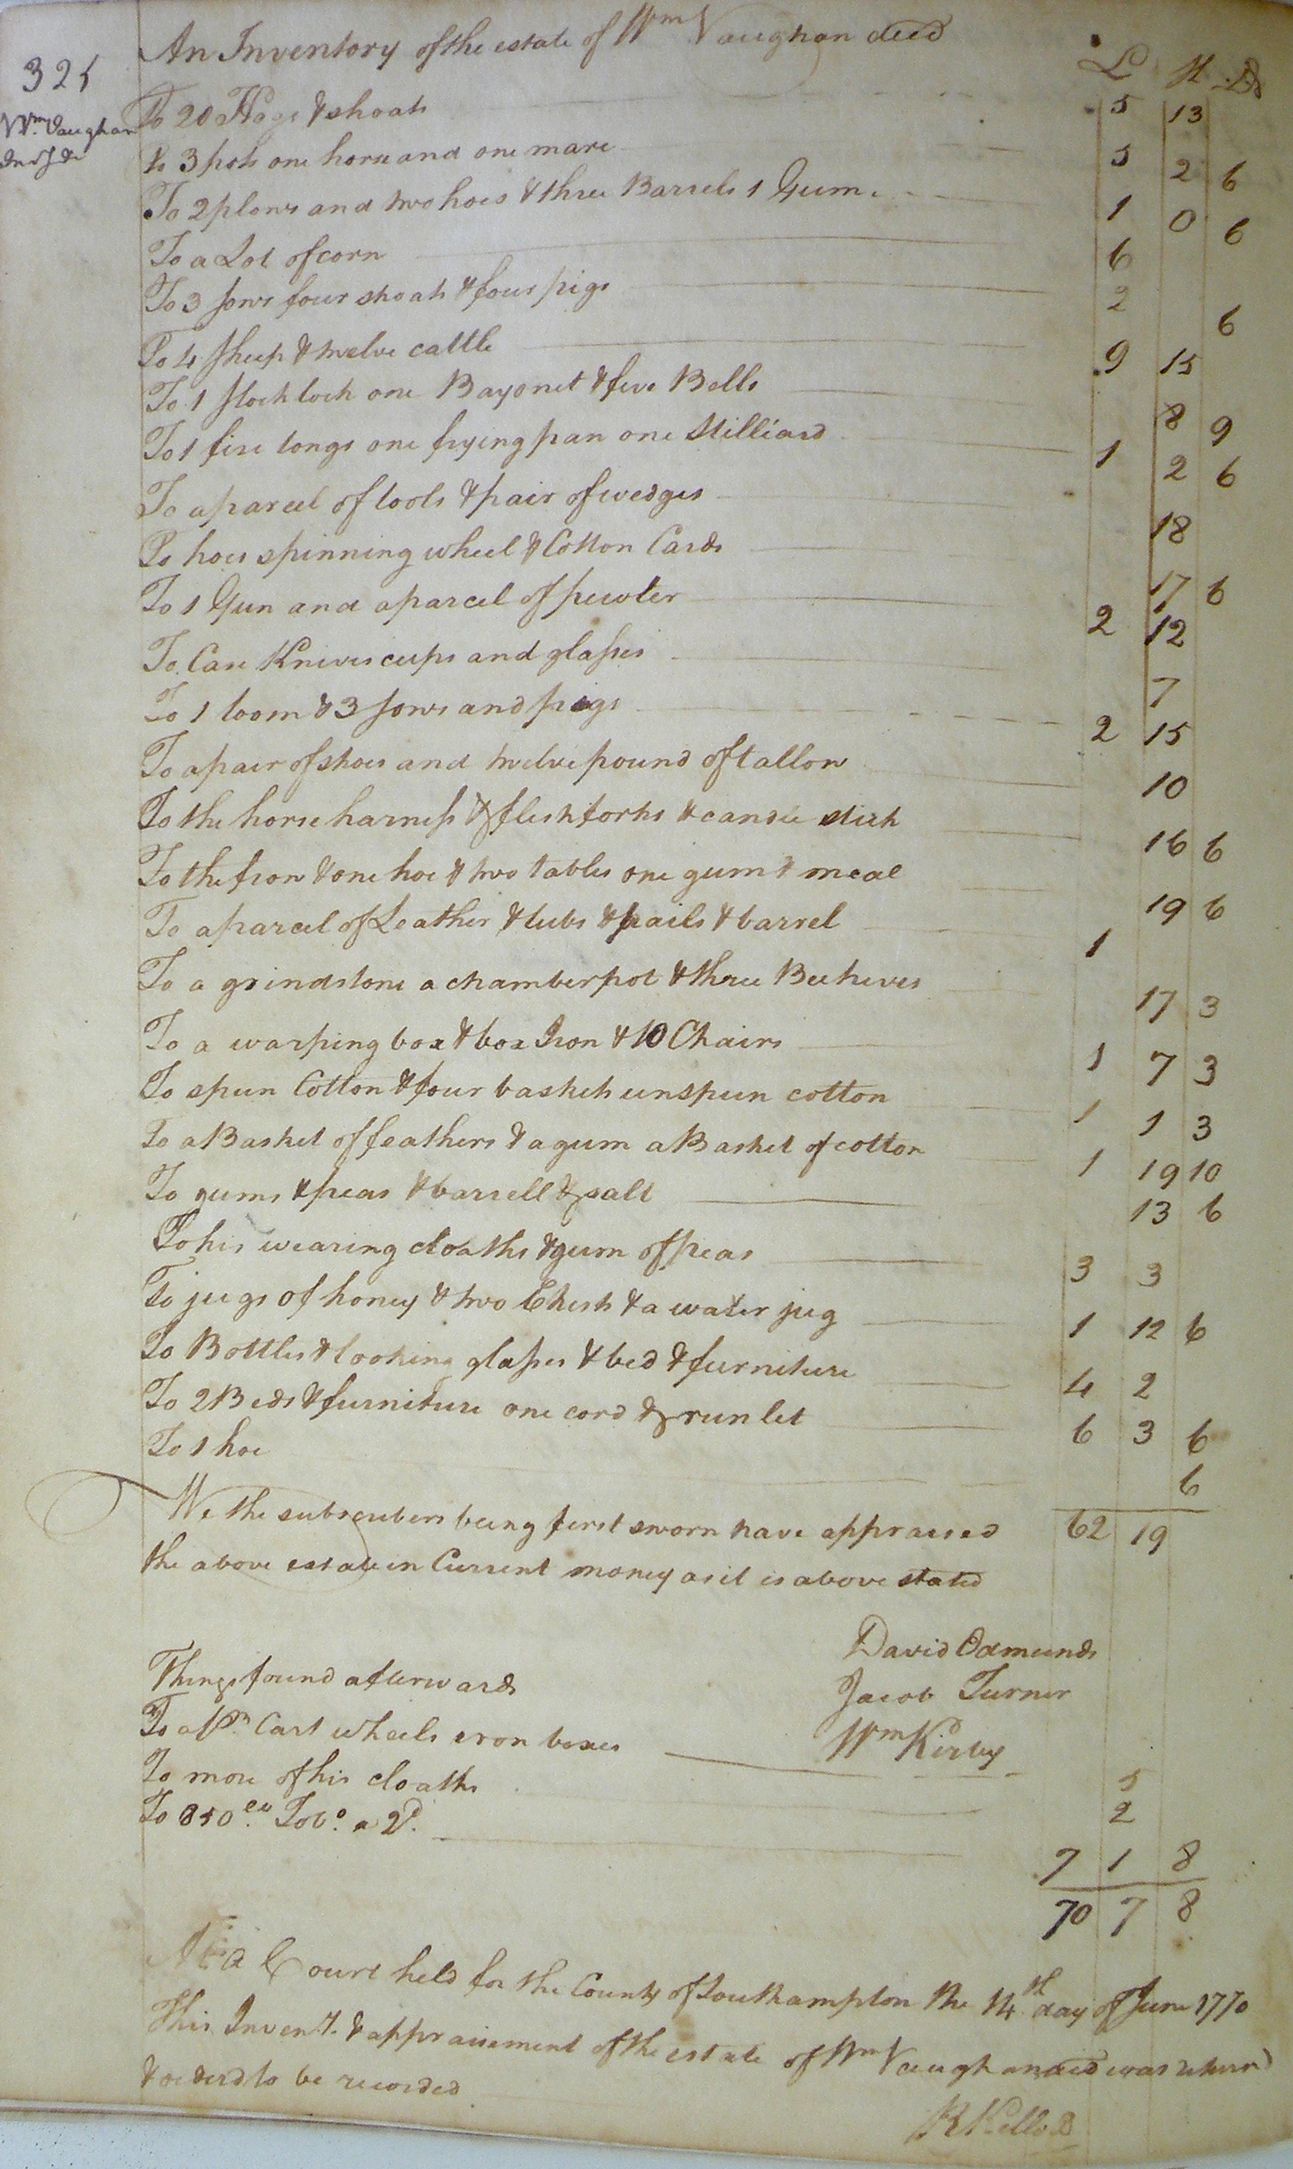 An Inventory of the estate of Wm Vaughan decd
325
£ S D
Wm. Vaughan
To 20 Hogs & shoats 5 13
to 3 pots one horse and one mare 5 2 6
To 2 plows and two hoes & three Barrels 1 Gum 1 0 6
To a Lot of corn 6
To 3 sows four shoats & four pigs 2 6
To 4 sheep & twelve cattle 9 15
To 1 stock lock one Bayonet & five Bells 8 9
To 1 fire tongs one frying pan one Stilliard 1 2 6
To a parcel of tools & pair of wedges 18
To hoes spinning wheel & Cotton Cards 17 6
To 1 Gun and a parcel of pewter 2 12
To Case Knives cups and glasses 7
To 1 loom & 3 sows and pigs 2 15
To a pair of shoes and twelve pound of tallow 10
To the horse harness & flesh forks & candle stick 16 6
To the frow & one hoe & two tables one gum & meal 19 6
To a parcel of Leather & tubs & pails & barrel 1
To a grindstone a chamberpot & three Beehives 17 3
To a warping box & box Iron & 10 Chairs 1 7 3
To spun Cotton & four baskets unspun cotton 1 1 3
To a Basket of feathers & a gum a Basket of cotton 1 19 10
To gums & peas & barrell & salt 13 6
To his wearing cloaths & gum of peas 3 3
To jugs of honey & two Chests & a water jug 1 12 6
To Bottles & looking glasses & bed & furniture 4 2
To 2 Beds & furniture one cord & runlet 6 3 6
To 1 hoe 6
We the subscribers being first sworn have appraised 62 19
the above estate in Current money as it is above stated
David Edmunds
Things found afterwards
Jacob Turner
To a Pr. Cart wheels eron boxes
Wm Kirby
To more of his cloaths 5
To 850 lb. Tobo. a 2d. 2
7 1 8
70 7 8
At a Court held for the County of Southampton the 14th day of June 1770
This Invent. & appraisement of the estate of Wm Vaughan decd was return'd
& orderd to be recorded
R Kello